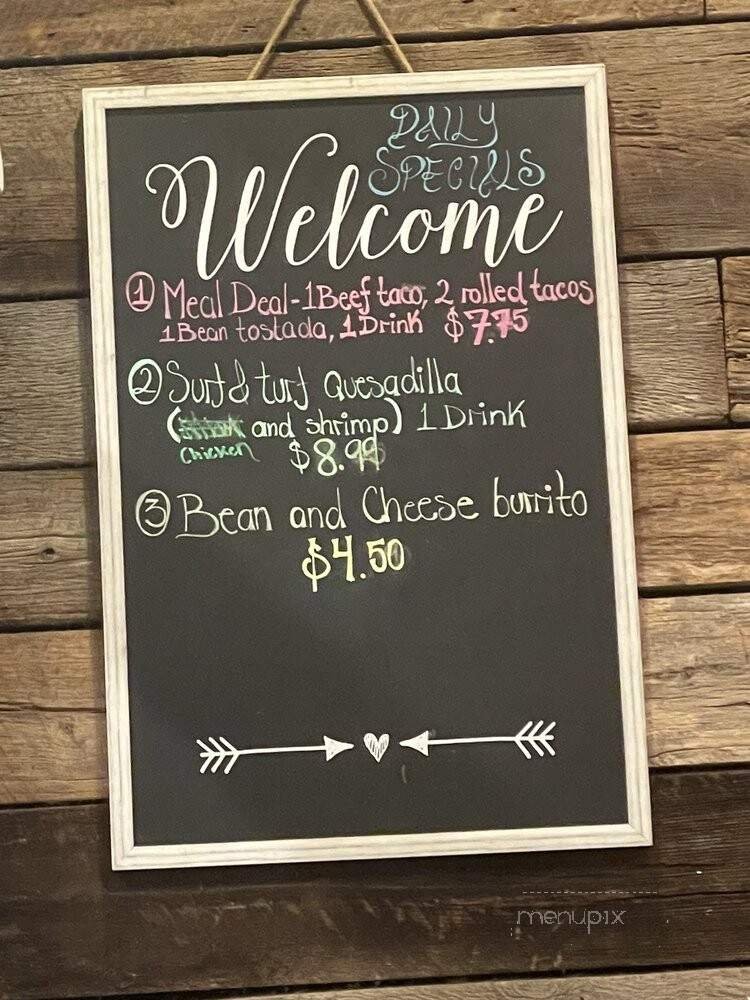 DAILY
SPECIALS
Welcome
① Meal Deal-1Beef taco, 2 rolled tacos
1Bean tostada, 1Drink $7.75
② Surf & turf Quesadilla
( and shrimp) 1 Drink
Chicken $8.99
③ Bean and Cheese burrito
$4.50
menupix